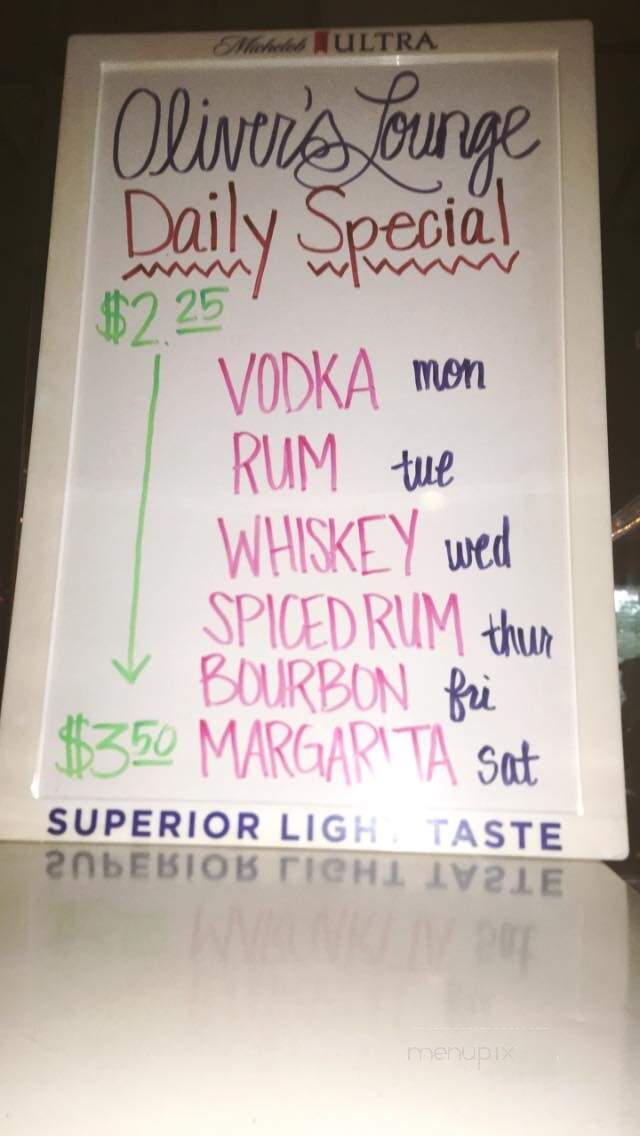 Michelob ULTRA
Oliver's Lounge
Daily Special
$2.25
VODKA mon
RUM tue
WHISKEY wed
SPICED RUM thur
BOURBON fri
$3.50 MARGARITA sat
SUPERIOR LIGHT TASTE
menupix